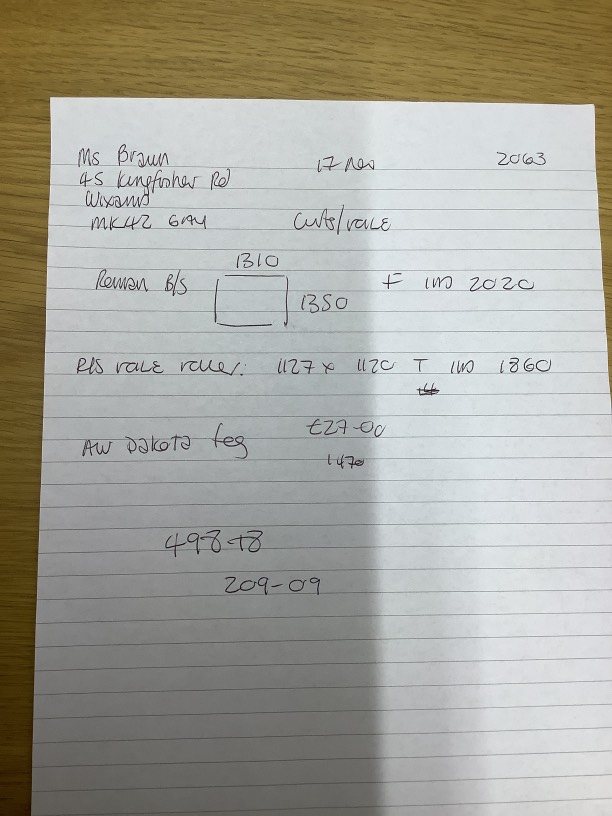 Ms Braun 17 nov 2063
45 Kingfisher Rd
Wixams
MK42 6AY Curts/vale
Roman B/S 1310 F 1W 2020
1350
P/S vale valer: 1127 x 1120 T 1W 1860
AW Dakota feg £27-00
1470
498+8
209-09